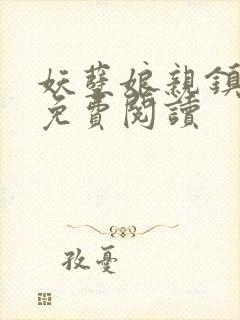 妖孽娘親鎮
免費閱讀
孜憂